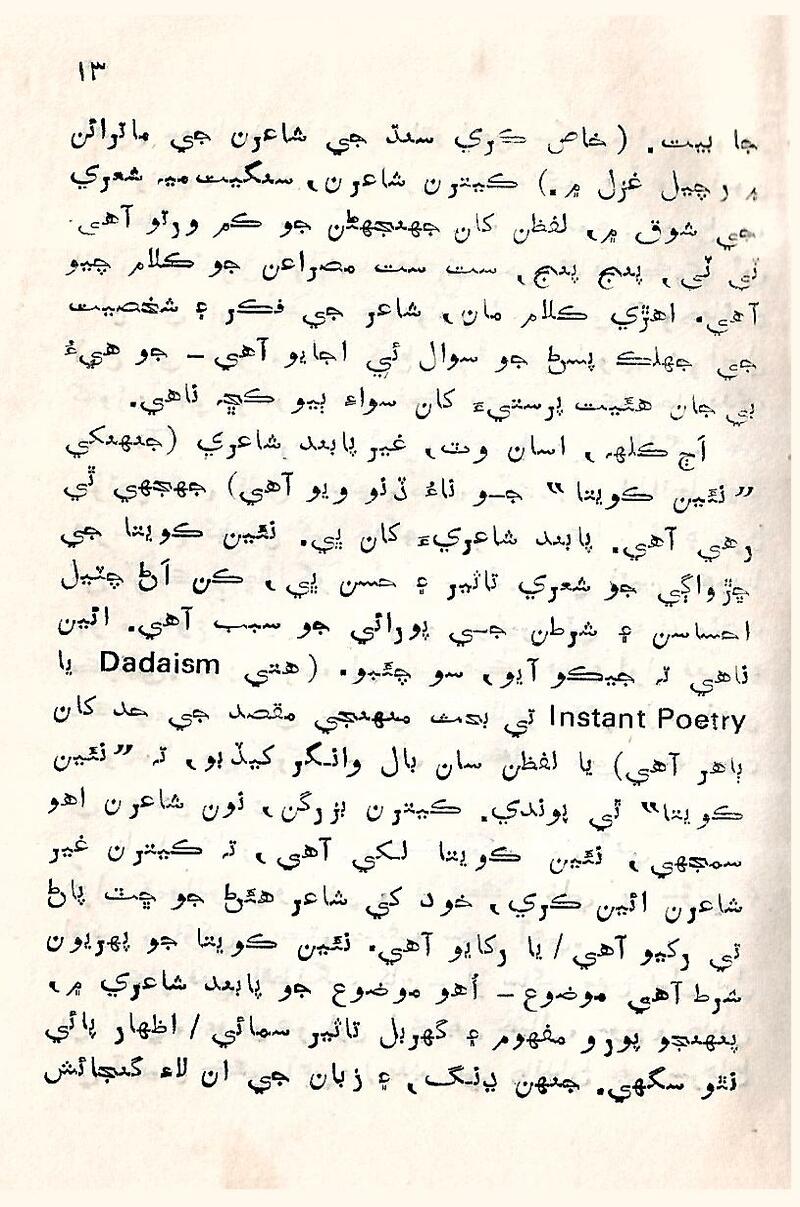 ۱۳
جا بيت. (خاص ڪري سنڌ جي شاعرن جي ماترائن
۾ رچيل غزل ۾.) ڪيترن شاعرن، سنگيت ميہ شعري
جي شوق ۾، لفظن کان جهنجهڻن جو ڪم ورتو آهي.
ٽي ٽي، پنج پنج، ست ست مصراعن جو ڪلام چيو
آهي. اهڙي ڪلام مان، شاعر جي فڪر ۽ شخصيت
جي جهلڪ پسڻ جو سوال ئي اجايو آهي – جو هيءُ
بي جان هئيت پرستيءَ کان سواءِ ٻيو ڪڇہ ناهي.
اَڄ ڪلهہ، اسان وٽ، غير پابند شاعري (جنهنکي
”نئين ڪويتا“ جو ناءُ ڏنو ويو آهي) جهجهي ٿي
رهي آهي. پابند شاعريءَ کان ڀي. نئين ڪويتا جي
ڇڙواڳي جو شعري تاثير ۽ حسن ڀي، ڪن اَڻ چٽيل
احساسن ۽ شرطن جي پورائي جو سبب آهي. ائين
ناهي تہ جيڪو آيو، سو چئبو. (هتي Dadaism يا
Instant Poetry تي بحث منهنجي مقصد جي حد کان
ٻاهر آهي) يا لفظن سان بال وانگر کيڏبو، تہ ”نئين
ڪويتا“ ٿي پوندي. ڪيترن بزرگن، نون شاعرن اهو
سمجهي، نئين ڪويتا لکي آهي، تہ ڪيترن غير
شاعرن ائين ڪري، خود کي شاعر هئڻ جو ڇٽ پاڻ
تي رکيو آهي/يا رکايو آهي. نئين ڪويتا جو پهريون
شرط آهي موضوع – اُهو موضوع جو پابند شاعري ۾،
پنهنجو پورو مفهوم ۽ گهربل تاثير سمائي/اظهار پائي
نٿو سگهي. جنهن ڍنگ، ۽ زبان جي ان لاءِ گنجائش